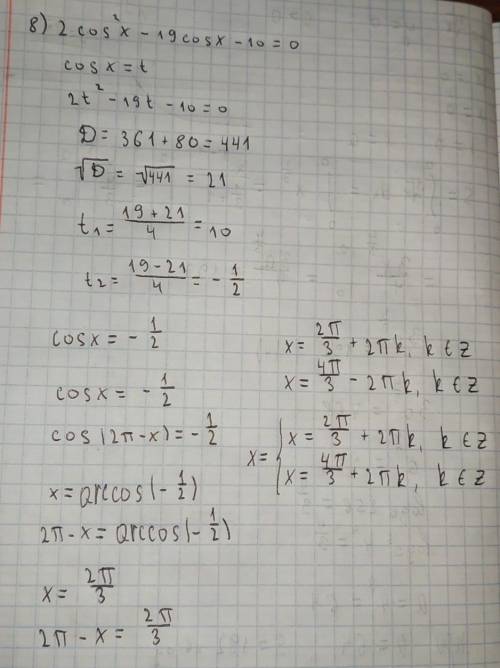 8) 2 cos²x - 19cosx - 10 = 0
cosx = t
2t² - 19t - 10 = 0
D = 361 + 80 = 441
√D = √441 = 21
t₁ = (19 + 21)/4 = 10
t₂ = (19 - 21)/4 = - 1/2
cosx = - 1/2
cosx = - 1/2
cos(2π - x) = - 1/2
x = arccos(- 1/2)
2π - x = arccos(- 1/2)
x = 2π/3
2π - x = 2π/3
x = 2π/3 + 2πk, k ∈ Z
x = 4π/3 - 2πk, k ∈ Z
x = { x = 2π/3 + 2πk, k ∈ Z
x = 4π/3 + 2πk, k ∈ Z